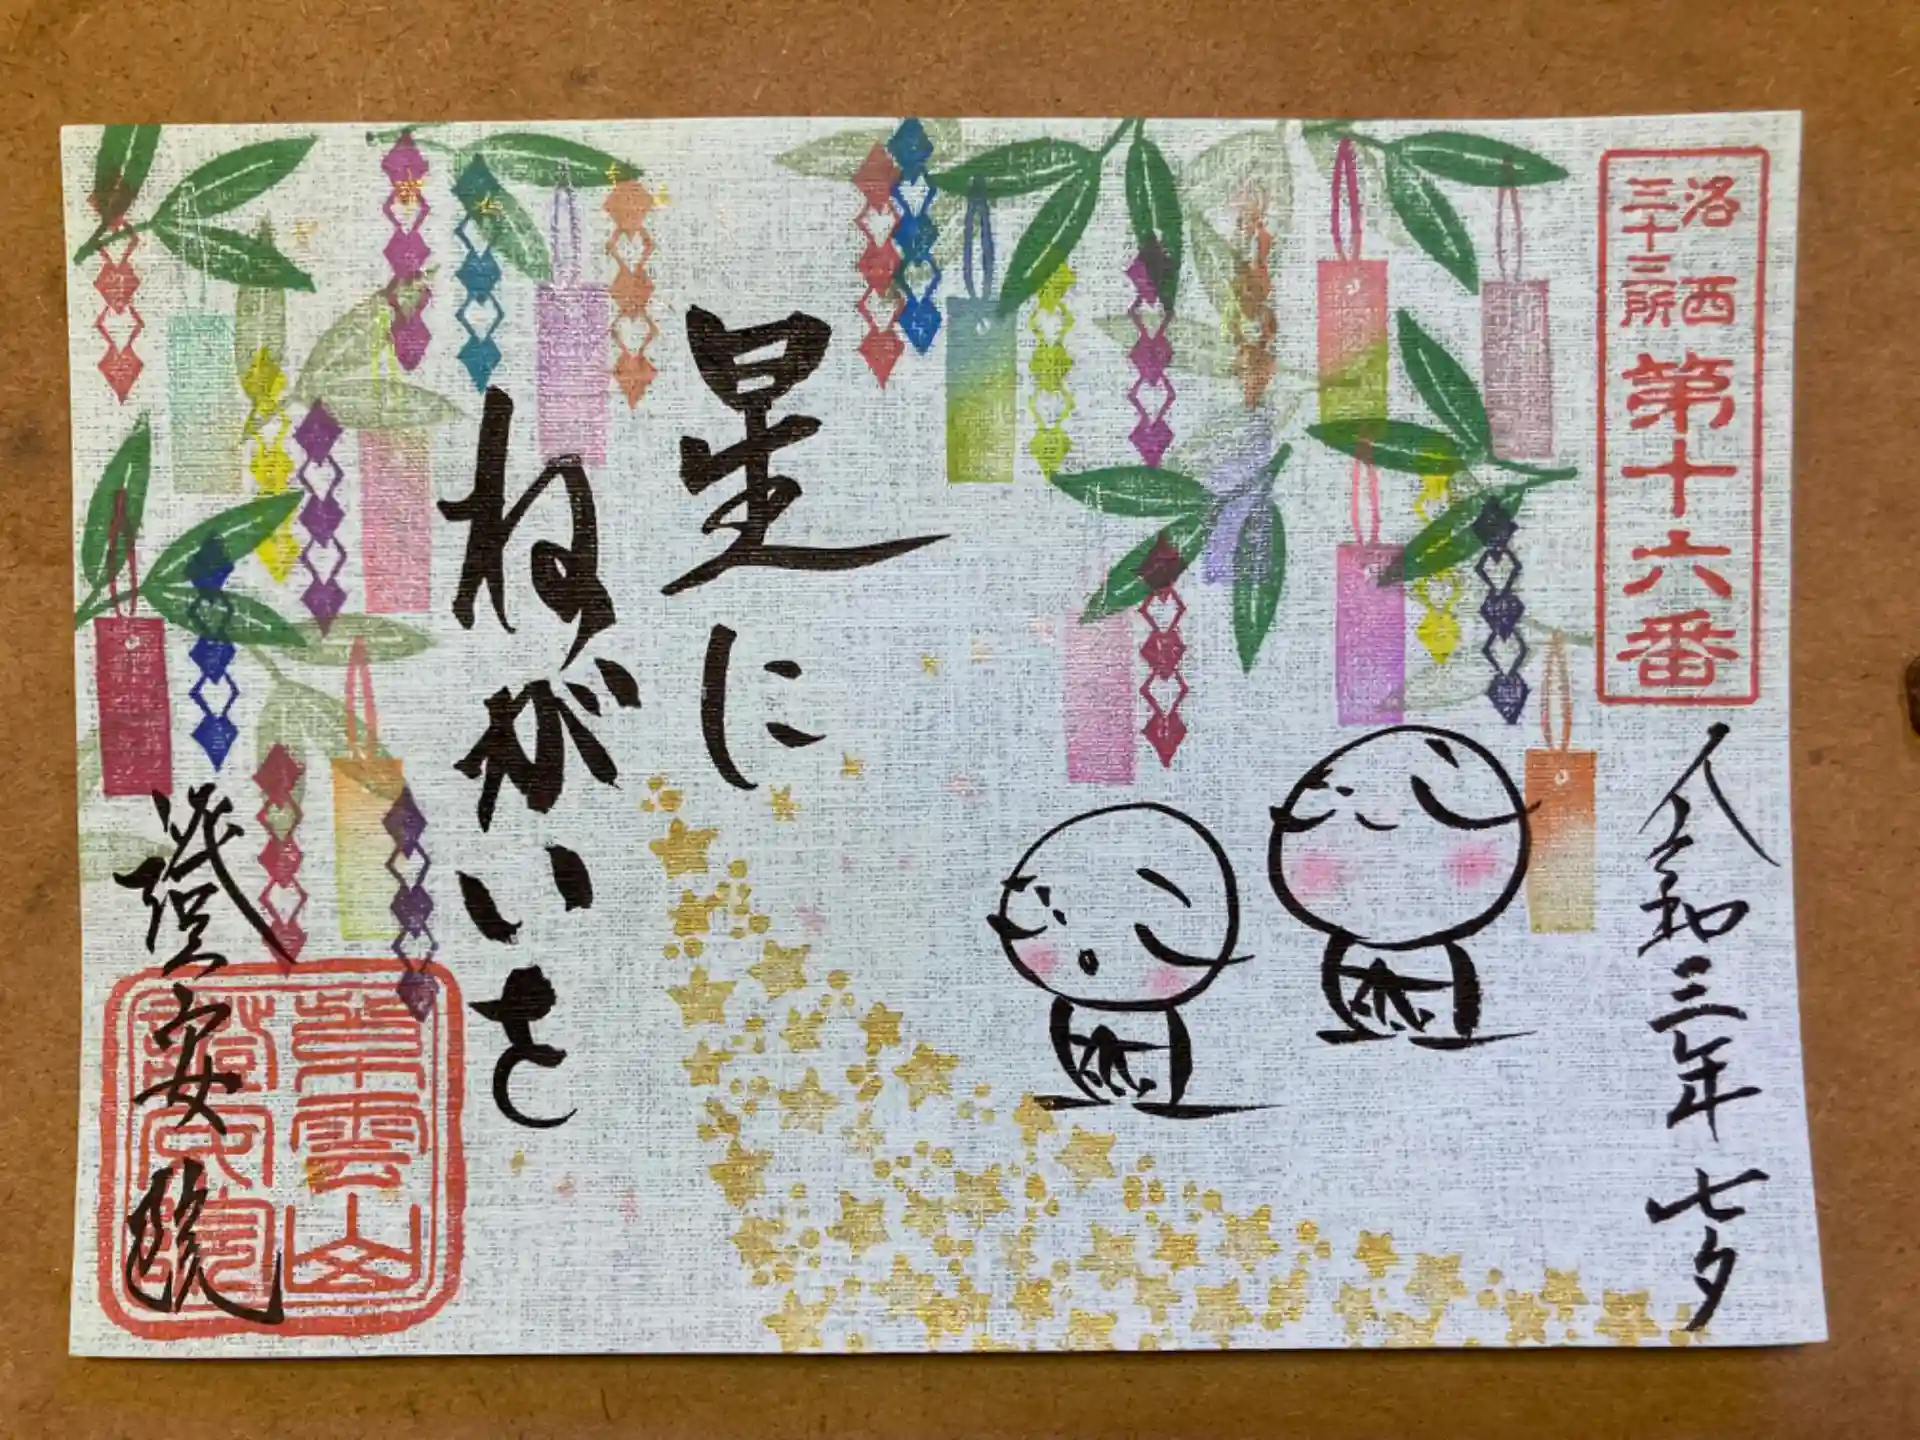 洛西
三十三所
第十六番
令和三年 七夕
星に
ねがいを
華雲山
證安院